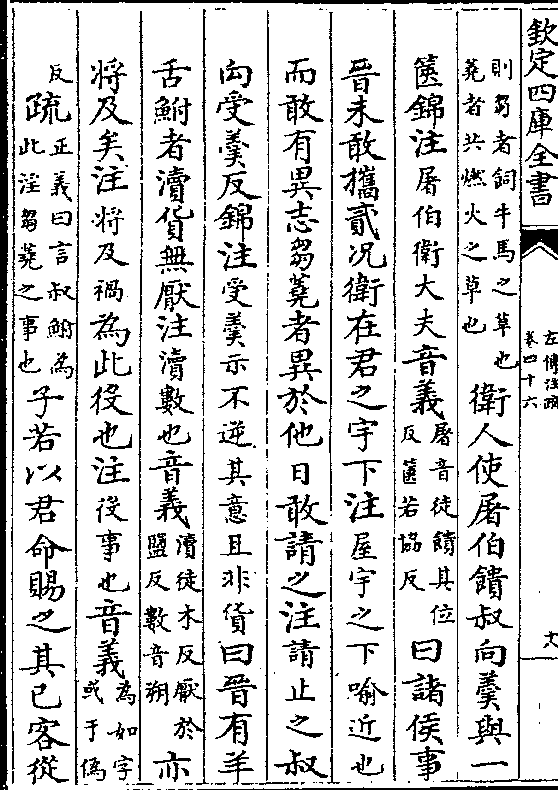 欽定四庫全書
左傳注疏
卷四十六
則芻者飼牛馬之草也
蕘者共燃火之草也衛人使屠伯饋叔向羹與一
篋錦注屠伯衛大夫音義屠音徒饋其位
反篋苦協反曰諸侯事
晉未敢攜貳况衛在君之宇下注屋宇之下喻近也
而敢有異志芻蕘者異於他日敢請之注請止之叔
向受羹反錦注受羹示不逆其意且非貨曰晉有羊
舌鮒者瀆貨無厭注瀆數也音義瀆徒木反厭於
鹽反數音朔亦
將及矣注將及禍為此役也注役事也音義為如字
或于偽
反疏正義曰言叔鮒為
此淫芻蕘之事也子若以君命賜之其已客從